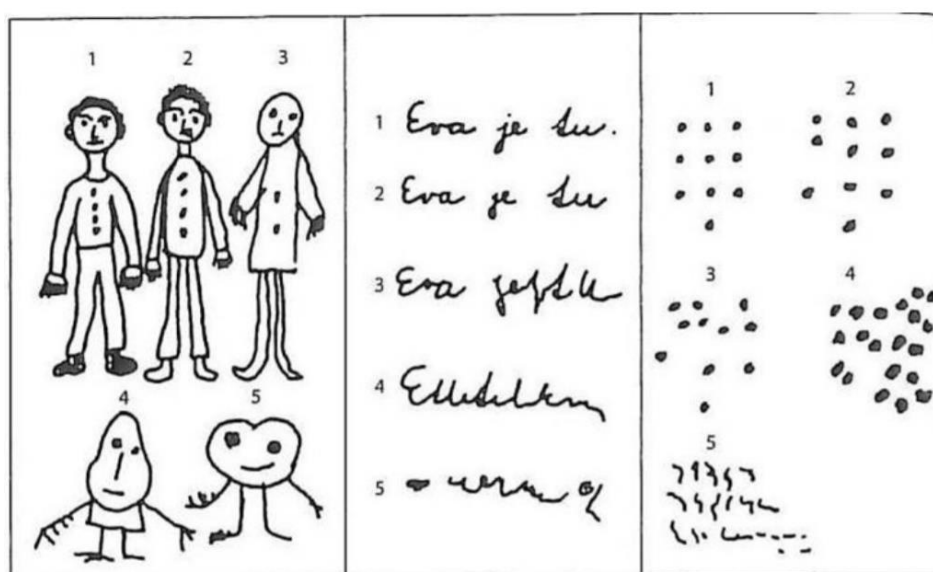 1 2 3
4 5
1 Eva je tu.
2 Eva je tu
3 Eva
4
5
1 2
3 4
5